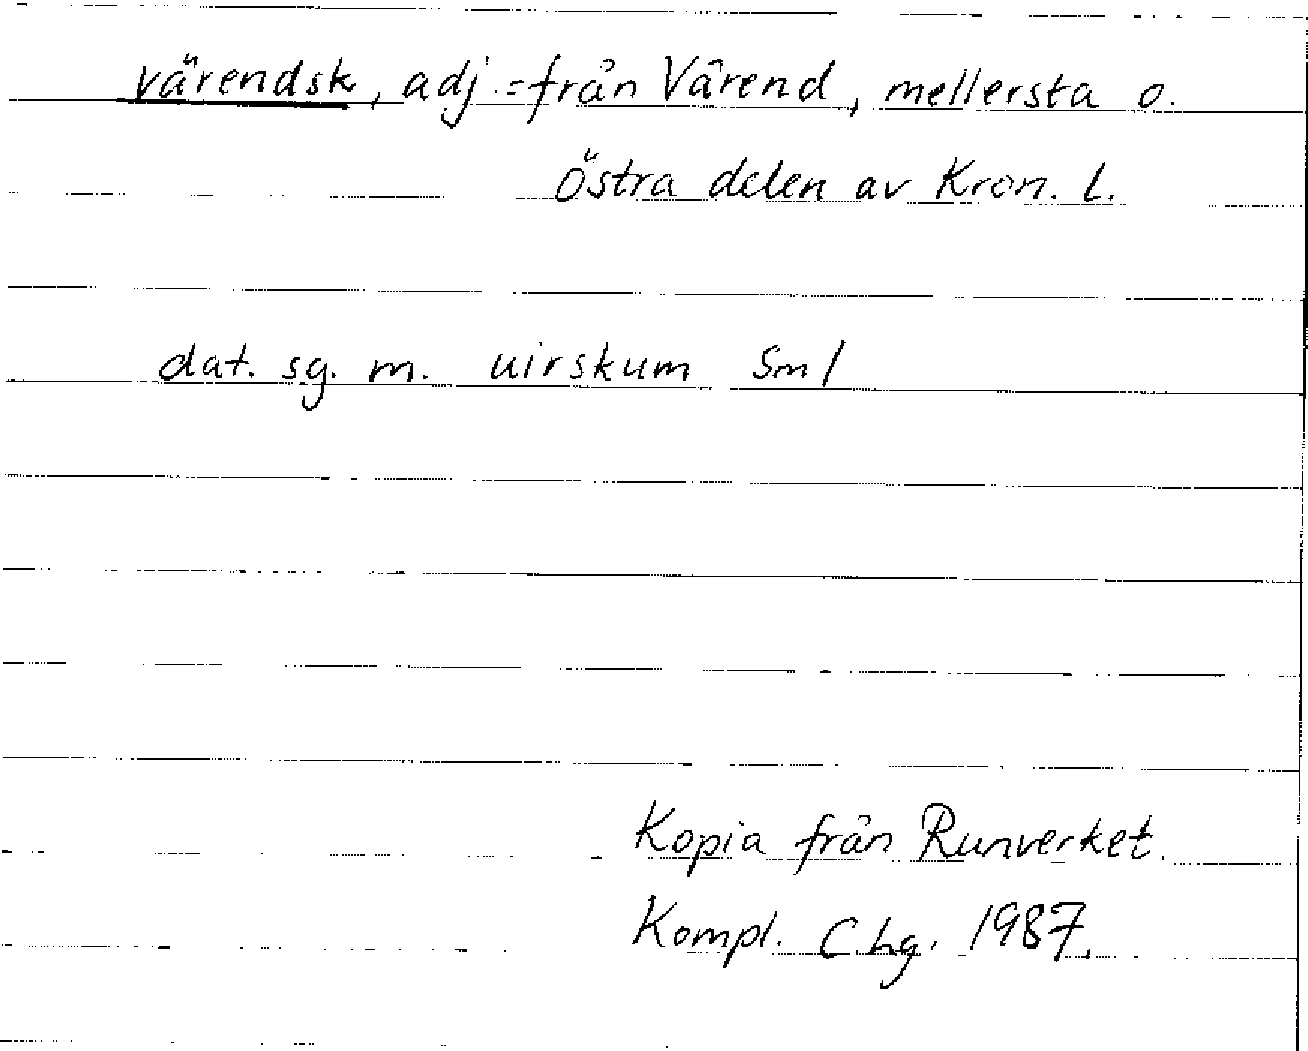 värendsk, adj. = från Värend, mellersta o.
östra delen av Kron. L.
dat. sg. m. uirskum Sm 1
Kopia från Runverket.
Kompl. C hg. 1987.